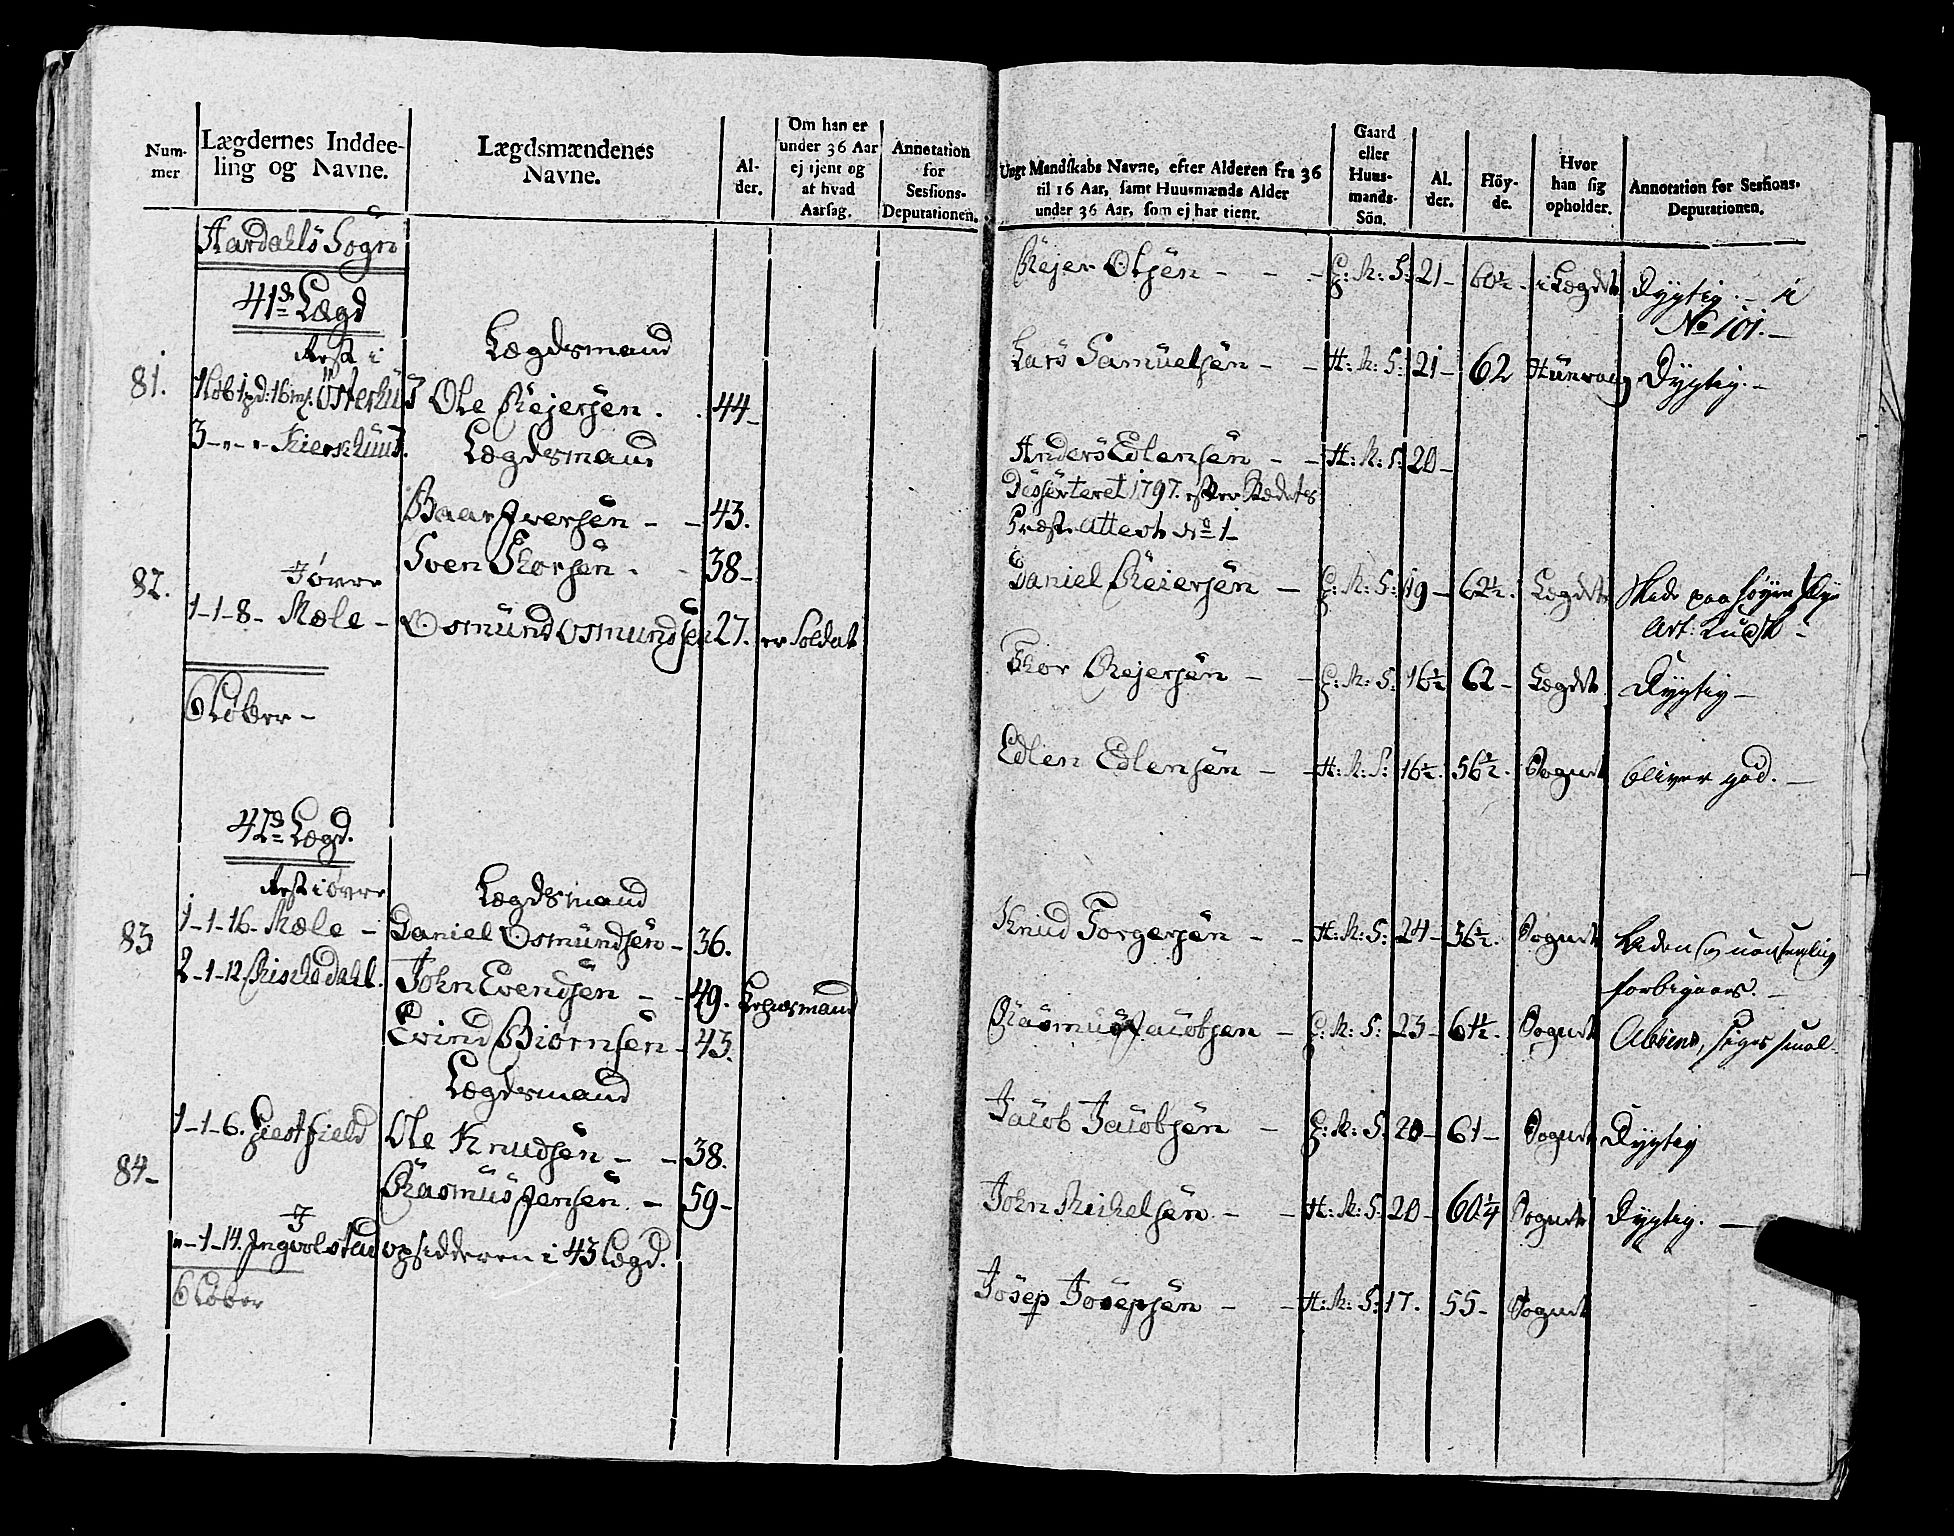 Num-
mer
Lægdernes Inddee-
ling og Navne.
Lægdsmændenes
Navne.
Al-
der.
Om han er
under 36 Aar
ej tjent og
at hvad
Aarsag.
Annotation
for
Sessions-
Deputationen.
Aardahls Sogn
41de Lægd
Rest i
Lægdsmand
81. 1 Løb 1 pd: 16 mk. Østerhus Ole Rejersen. 44-
3-"-" Kierschuus. Lægdsmand
Baar Iversen - - 43.
Sven Thorsen - - 38-
82. Øvre
1-1-8- Mæle - Osmund Osmundsen 27. er Soldat
6 Løber -
42de Lægd.
Rest i øvre
Lægdsmand
83 1-1-16- Mæle - Daniel Osmundsen - 36.
2-1-12. Rischedahl. John Evendsen - - 49. Lægdsmand
Evind Biørnsen - 43.
Lægdsmand
1-1-6. Fiestfield Ole Knudsen - - 38.
84- Rasmus Jensen - 59-
"-1-14. Ingvolstad opsidderen i 43 Lægd.
6 Løber
Ungt Mandskabs Navne, efter Alderen fra 36
til 16 Aar, samt Huusmænds Alder
under 36 Aar, som ej har tient.
Gaard
eller
Huus-
mands-
Sön.
Al.
der.
Höy-
de.
Hvor
han sig
opholder.
Annotation for Sessions-
Deputationen.
Rejer Olsen - - - G: M: S: 21- 60½- i Lægdet Dygtig. - i
No 101. -
Lars Samuelsen - - H: M: S: 21- 62 Hunvaag Dygtig. -
Anders Edlensen - - H: M: S: 20-
Desserteret 1797. efter Stædets
Præste Attest No 1-
Daniel Reiersen - G: M: S: 19- 62½. Lægdet
Thor Rejersen - - G: M: S: 16½ 62- Lægdet Dygtig -
Edlen Edlensen - - H: M: S: 16½. 56½. Sognet bliver god. -
Knud Torgersen - - H: M: S: 24- 56½. Sognet Liden og
forbigaaes. -
Rasmus Jacobsen - G: M: S: 23- 61½. Sognet Absent, siges
Jacob Jacobsen - G: M: S. 20- 61- Sognet Dygtig
John Michelsen - - H: M: S: 20- 60¼ Sognet Dygtig. -
Josep Josepsen - - H: M: S: 17. 55- Sognet